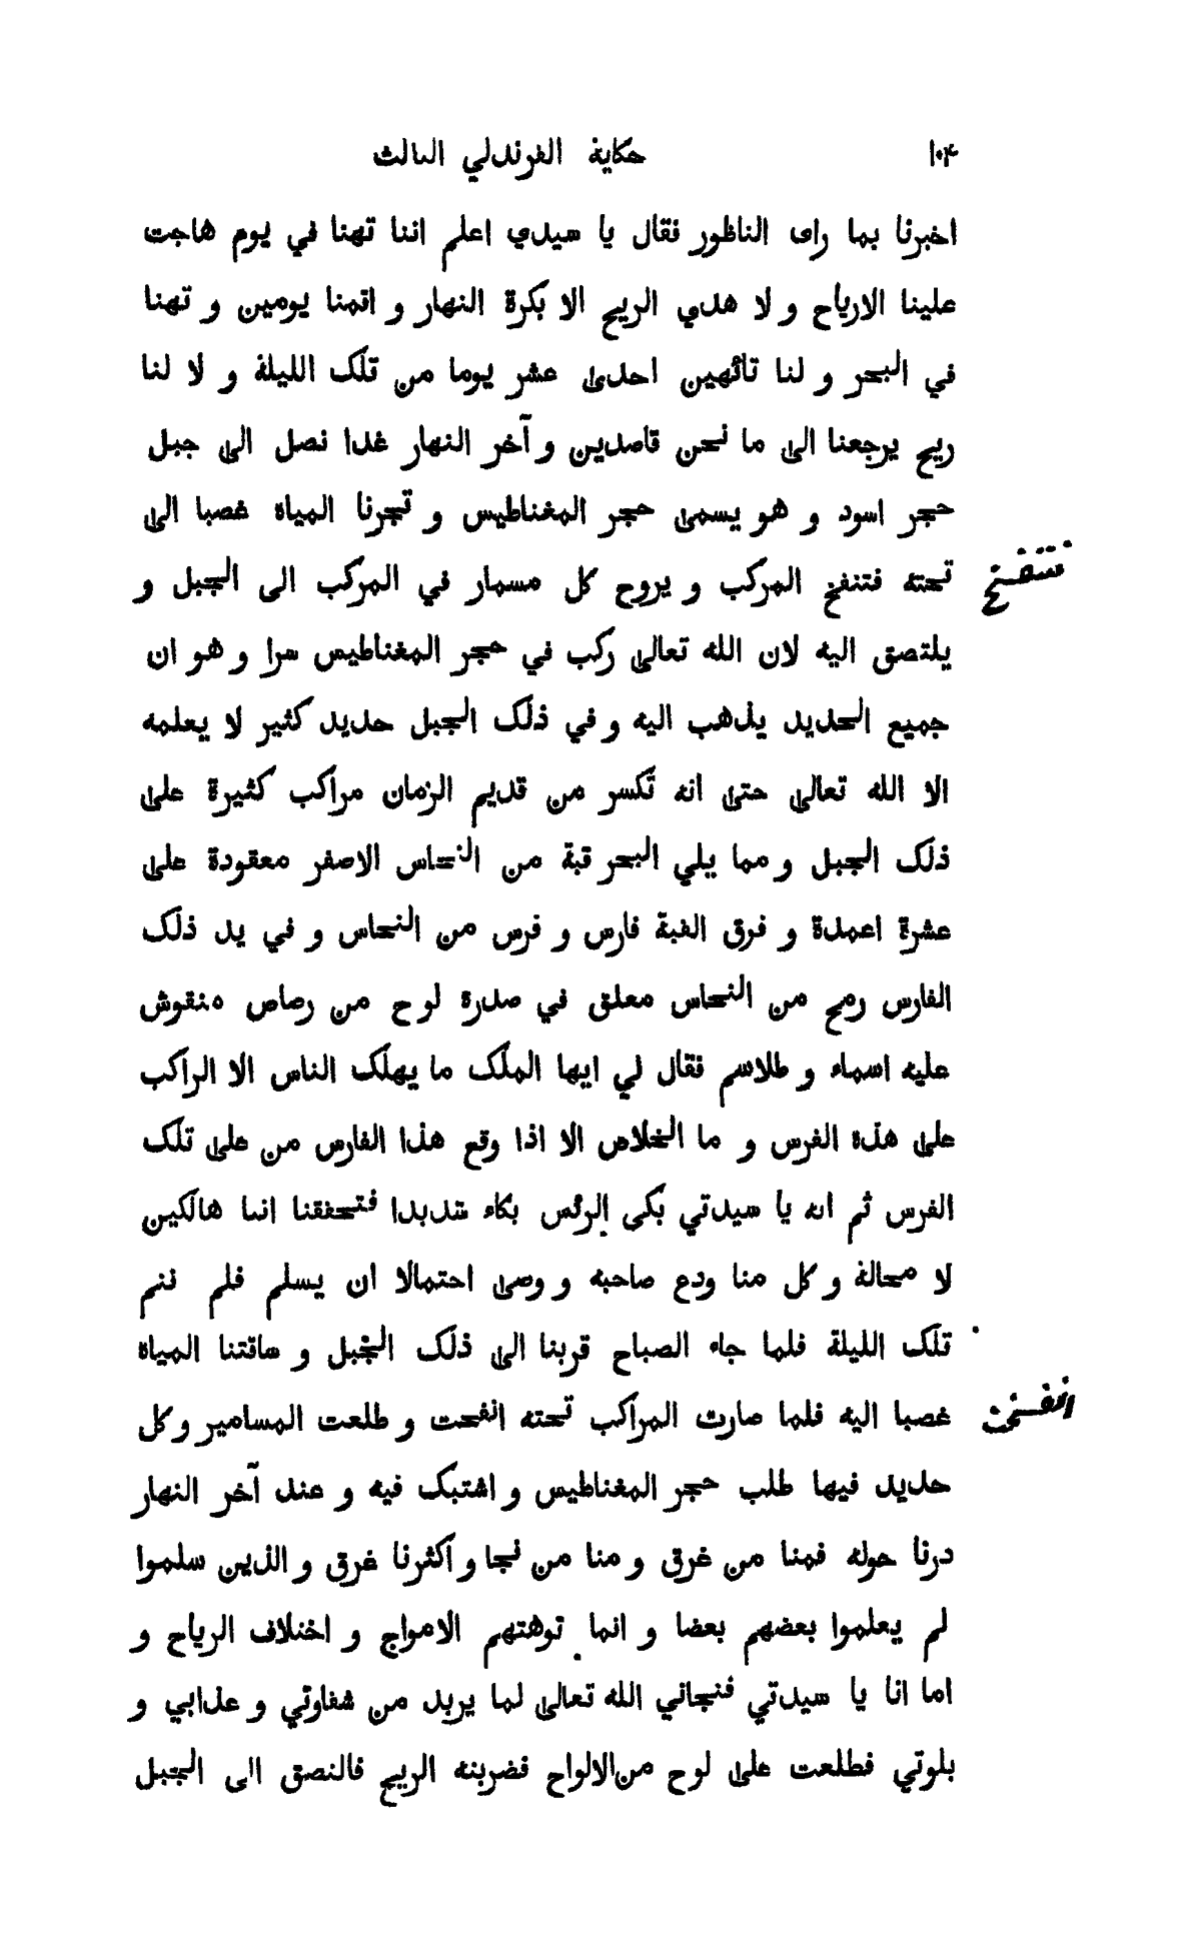 ١٠۴ حكاية القرندلي الثالث
اخبرنا بما راى الناظور فقال يا سيدي اعلم اننا تهنا في يوم هاجت
علينا الارياح و لا هدي الريح الا بكرة النهار و اقمنا يومين و تهنا
في البحر و لنا تائهين احدى عشر يوما من تلك الليلة و لا لنا
ريح يرجعنا الى ما نحن قاصدين و آخر النهار غدا نصل الى جبل
حجر اسود و هو يسمى حجر المغناطيس و تجرنا المياه غصبا الى
تحته فتنفخ المركب و يروح كل مسمار في المركب الى الجبل و
فتنفسخ
يلتصق اليه لان الله تعالى ركب في حجر المغناطيس سرا و هو ان
جميع الحديد يذهب اليه و في ذلك الجبل حديد كثير لا يعلمه
الا الله تعالى حتى انه تكسر من قديم الزمان مراكب كثيرة على
ذلك الجبل و مما يلي البحر قبة من النحاس الاصفر معقودة على
عشرة اعمدة و فوق القبة فارس و فرس من النحاس و في يد ذلك
الفارس رمح من النحاس معلق في صدرة لوح من رصاص منقوش
عليه اسماء و طلاسم فقال لي ايها الملك ما يهلك الناس الا الراكب
على هذه الفرس و ما الخلاص الا اذا وقع هذا الفارس من على تلك
الفرس ثم انه يا سيدتي بكى الرئس بكاء شديدا فتحققنا اننا هالكين
لا محالة و كل منا ودع صاحبه و وصى احتمالا ان يسلم فلم ننم
تلك الليلة فلما جاء الصباح قربنا الى ذلك الجبل و ساقتنا المياه
غصبا اليه فلما صارت المراكب تحته انفحت و طلعت المسامير و كل
انفسخت
حديد فيها طلب حجر المغناطيس و اشتبك فيه و عند آخر النهار
درنا حوله فمنا من غرق و منا من نجا و اكثرنا غرق و الذين سلموا
لم يعلموا بعضهم بعضا و انما توهتهم الامواج و اختلاف الرياح و
اما انا يا سيدتي فنجاني الله تعالى لما يريد من شقاوتي و عذابي و
بلوتي فطلعت على لوح من الالواح فضربنه الريح فالتصق الى الجبل